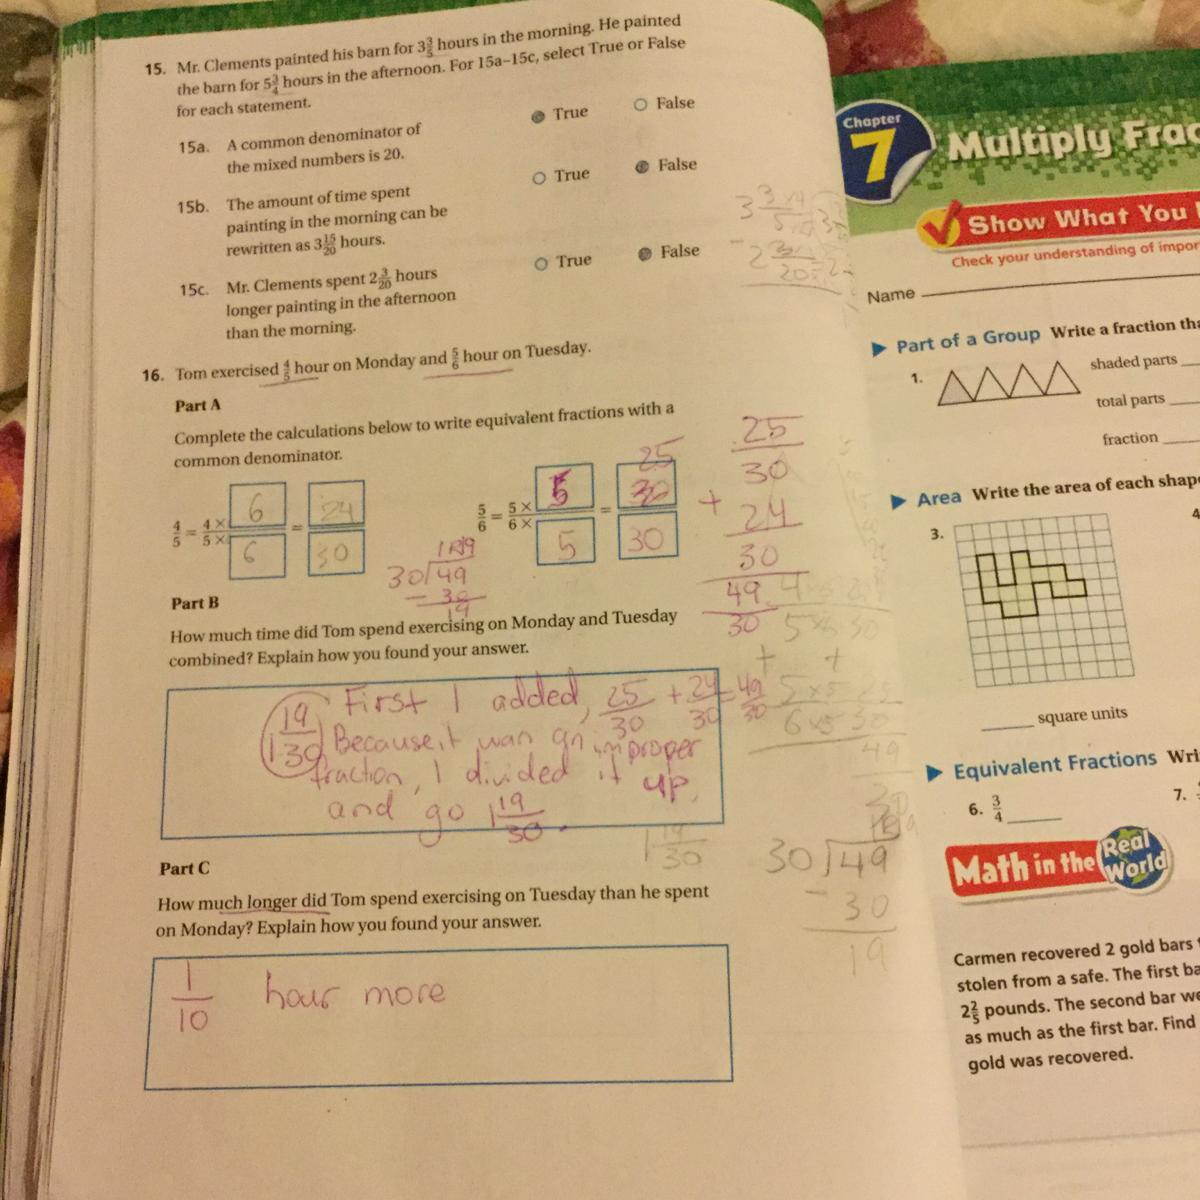 15. Mr. Clements painted his barn for 3 3/5 hours in the morning. He painted
the barn for 5 3/4 hours in the afternoon. For 15a–15c, select True or False
for each statement.
15a. A common denominator of
the mixed numbers is 20.
True False
15b. The amount of time spent
painting in the morning can be
rewritten as 3 15/20 hours.
True False
15c. Mr. Clements spent 2 3/20 hours
longer painting in the afternoon
than the morning.
True False
16. Tom exercised 4/5 hour on Monday and 5/6 hour on Tuesday.
Part A
Complete the calculations below to write equivalent fractions with a
common denominator.
4/5 = 4 × 6 / 5 × 6 = 24/30
5/6 = 5 × 5 / 6 × 5 = 25/30
30)49
- 30
19
25/30
+ 24/30
49/30
Part B
How much time did Tom spend exercising on Monday and Tuesday
combined? Explain how you found your answer.
1 19/30 First I added, 25/30 + 24/30 = 49/30
Because it was an improper
fraction, I divided it up,
and go 1 19/30.
1 19/30
30)49
- 30
19
Part C
How much longer did Tom spend exercising on Tuesday than he spent
on Monday? Explain how you found your answer.
1/10 hour more
Chapter
7
Multiply Frac
Show What You
Check your understanding of impor
Name
Part of a Group Write a fraction tha
1.
shaded parts
total parts
fraction
Area Write the area of each shap
3.
4
square units
Equivalent Fractions Wri
6. 3/4
7.
Math in the Real World
Carmen recovered 2 gold bars
stolen from a safe. The first ba
2 2/5 pounds. The second bar we
as much as the first bar. Find
gold was recovered.